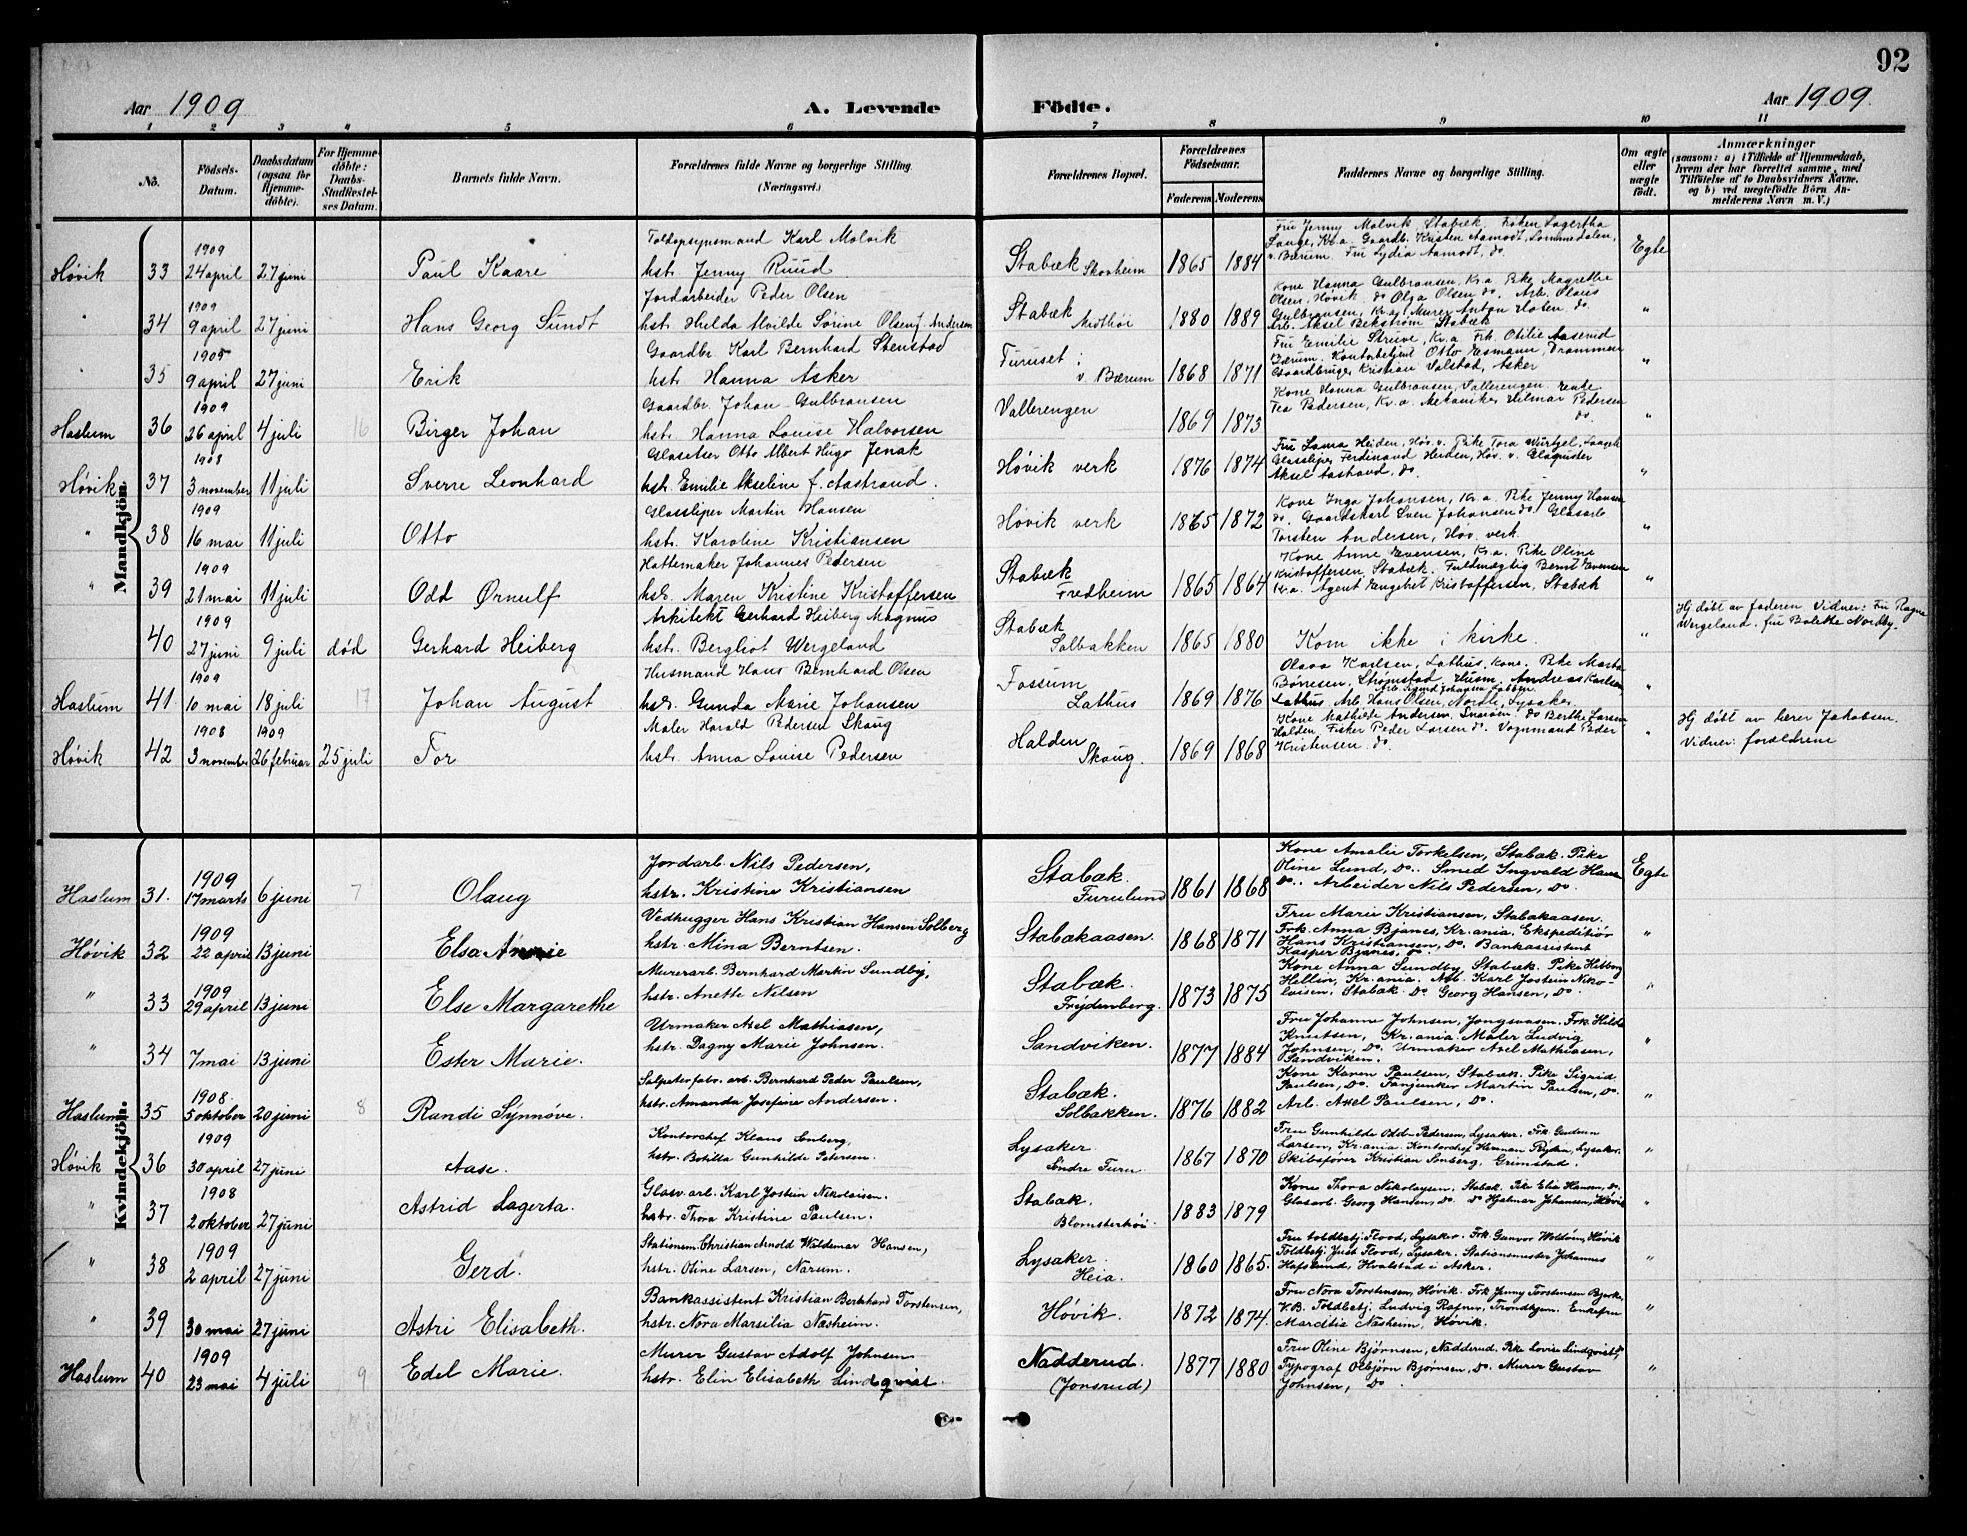 92
Aar 1909 A. Levende Födte. Aar 1909.
1 2 3 4 5 6 7 8 9 10 11
No.
Födsels-Datum.
Daabsdatum (ogsaa for Hjemme-döbte).
For Hjemme-döbte: Daabs-Stadfæstel-ses Datum.
Barnets fulde Navn.
Forældrenes fulde Navne og borgerlige Stilling. (Næringsvei.)
Forældrenes Bopæl.
Forældrenes Födselsaar.
Faderens Moderens
Faddernes Navne og borgerlige Stilling.
Om ægte eller uægte födt.
Anmærkninger
(saasom: a) i Tilfælde af Hjemmedaab,
hvem der har forrettet samme, med
Tilföielse af to Daabsvidners Navne,
og b) ved uægtefödte Börn An-
melderens Navn m. V.)
Mandkjön.
Høvik 33 1909 24 april 27 juni Paul Kaare
Toldopsynsmand Karl Molvik
hstr. Jenny Ruud
Stabæk Skovheim 1865 1884
Fru Jenny Molvik Stabæk, Frøken Lagertha
Lange, Kr.a. Gaardb. Kristen Aamodt, Lommedalen,
v. Bærum. Fru Lydia Aamodt, do. Egte
" 34 1909 9 april 27 juni Hans Georg Sundt
Jordarbeider Peder Olsen
hstr. Hulda Alvilde Sørine Olsen f. Andersen
Stabæk 1880 1889
Kone Hanna Gulbransen, Kr.a. Pike Magrethe
Olsen, Høvik. do Olga Olsen do. Arb. Olaus
Gulbransen, Kr.a. Murer Anton Holen do.
Arb. Aksel Bekstrøm Stabæk "
" 35 1905 9 april 27 juni Erik
Gaardbr. Karl Bernhard Stenstad
hstr. Hanna Asker
Furuset i v. Bærum 1868 1871
Fru Emilie Struve, Kr.a. Frk. Otilie Aaserud
Bærum. Kontorbetjent Otto Esmann, Drammen
Gaardbruger Kristian Valstad, Asker "
Haslum 36 1909 26 april 4 juli 16 Birger Johan
Gaardbr. Johan Gulbransen
hstr. Hanna Louise Halvorsen
Vallerengen 1869 1873
Kone Hanna Gulbransen, Vallerengen, enke
Tea Pedersen, Kr.a. Mekaniker Hilmar Pedersen
do. "
Høvik 37 1908 3 november 11 juli Sverre Leonhard
Glasetser Otto Albert Hugo Jenak
hstr. Emilie Akseline f. Aastrand.
Høvik verk 1876 1874
Fru Laura Heiden, Høv. v. Pike Tora Würtzel,
Glassliper Ferdinand Heiden, Høv. v. Glaspuster
Aksel Aastrand, do. "
" 38 1909 16 mai 11 juli Otto
Glassliper Martin Hansen
hstr. Karoline Kristiansen
Høvik verk 1865 1872
Kone Inga Johansen, Kr.a. Pike Jenny Hansen
do. Gaardskarl Sven Johansen do. Glasarb.
Torsten Andersen, Høv. verk. "
" 39 1909 21 mai 11 juli Odd Ørnulf
Hattemaker Johannes Pedersen
hstr. Maren Kristine Kristoffersen
Stabæk Fredheim 1865 1864
Kone Anne Evensen, Kr.a. Pike Oline
Kristoffersen, Stabæk. Fuldmægtig Bernt Evensen
Kr.a. Agent Engebret Kristoffersen, Stabæk "
40 1909 27 juni 9 juli død Gerhard Heiberg
Arkitekt Gerhard Heiberg Magnus
hstr. Bergliot Wergeland
Stabæk Solbakken 1865 1880
Kom ikke i kirke. "
Hj døbt av faderen Vidner: Fru Ragna
Wergeland. fru Bolette Nordby.
Haslum 41 1909 10 mai 18 juli 17 Johan August
Husmand Hans Bernhard Olsen
hstr. Gunda Marie Johansen
Fossum Lathus 1869 1876
Olava Karlsen, Lathus, kone. Pike Marta
Børresen, Strømstad, Husm. Andreas Karlsen
Lathus Arb. Hans Olsen, Nordli, Lysaker "
Høvik 42 1908 3 november 1909 26 februar 25 juli Tor
Maler Harald Pedersen Skaug
hstr. Anna Louise Pedersen
Halden Skaug. 1869 1868
Kone Mathilde Andersen, Snarøen. do Berthe Larsen
Halden, Fisker Peder Larsen do. Vognmand Peder
Kristensen do. "
Hj døbt av lærer Jakobsen.
Vidner: forældrene
Kvindekjön.
Haslum 31. 1909 17 marts 6 juni 7 Olaug
Jordarb. Nils Pedersen,
hstr. Kristine Kristiansen
Stabæk. Furulund 1861 1868
Kone Amalie Torkelsen, Stabæk. Pike
Oline Lund, Do.. Smed Ingvald Hansen
Do.. Arbeider Nils Pedersen, Do. Egte
Høvik 32 1909 22 april 13 juni Elsa Annie
Vedhugger Hans Kristian Hansen Solberg
hstr. Mina Berntsen.
Stabækaasen. 1868 1871
Fru Marie Kristiansen, Stabækaasen.
Frk. Anna Bjanes, Kr.ania. Ekspeditiør
Hans Kristiansen, Do. Bankassistent
Kasper Bjanes, do. "
" 33 1909 29 april 13 juni Else Margarethe
Murerarb. Bernhard Martin Sundby,
hstr. Anette Nilsen
Stabæk. Frydenberg. 1873 1875
Kone Anna Sundby, Stabæk. Pike Hilborg
Hellin, Kr.ania. Arb. Karl Jostein Niko-
laisen, Stabæk. Do. Georg Hansen, Do. "
" 34 7 mai 13 juni Ester Marie.
Urmaker Axel Mathiasen,
hstr. Dagny Marie Johnsen.
Sandviken. 1877 1884
Fru Johanne Johnsen, Jongsaasen. Frk. Hilda
Knutsen, Kr.ania. Maler Ludvig
Johnsen, Do. Urmaker Axel Mathiasen,
Sandviken. "
Haslum 35 1908. 5 oktober 20 juni 8 Randi Synnøve.
Salpeterfabr. arb. Bernhard Peder Paulsen,
hstr. Amanda Josefine Andersen.
Stabæk. Solbakken. 1876 1882
Kone Karen Paulsen, Stabæk. Pike Sigrid
Paulsen, Do. Fanjunker Martin Paulsen, Do.
Arb. Axel Paulsen, Do. "
Høvik 36 1909 30 april 27 juni Aase.
Kontorchef Klaus Sonberg,
hstr. Botilla Gunhilde Petersen.
Lysaker. Søndre Furu 1867 1870
Fru Gunhilde Odd-Pedersen, Lysaker. Frk. Gudrun
Larsen, Kr.ania. Kontorchef Herman Röyken, Lysaker.
Skibsfører Kristian Sonberg, Grimstad. "
" 37 1908 2 oktober 27 juni Astrid Lagerta.
Glasv. arb. Karl Jostein Nikolaisen.
hstr. Thora Kristine Paulsen.
Stabæk. Blomsterhøi. 1883 1879
Kone Thora Nikolaysen, Stabæk. Pike Elin Hansen, Do.
Glasarb. Georg Hansen, do. Do Hjalmar Johansen, Høvik "
" 38 1909 2 april 27 juni Gerd.
Stationsm. Christian Arnold Waldemar Hansen,
hstr. Oline Larsen, Narum.
Lysaker. Heia. 1860 1865.
Fru toldbetj. Flood, Lysaker. Frk. Gunvor Woldom, Høvik
Toldbetj. Just Flood, Lysaker. Stationsmester Johannes
Hafslund, Hvalstad i Asker. "
" 39 30 mai 27 juni Astri Elisabeth.
Bankassistent Kristian Bernhard Torstensen,
hstr. Nora Marsilia Næsheim.
Høvik. 1872 1874.
Fru Nora Torstensen, Høvik. Frk Jenny Torstensen Bjerke,
V.B. Toldbetj. Ludvig Rafner, Trondhjem. Enkefru
Marcitia Næsheim, Høvik. "
Haslum 40 1909 23 mai 4 juli 9 Edel Marie.
Murer Gustav Adolf Johnsen
hstr. Elin Elisabeth Lindqvist.
Nadderud. (Jonsrud) 1877 1880
Fru Oline Bjørnsen, Nadderud. Pike Lovise Lindqvist, Do
Typograf Osbjørn Bjørnsen, Do. Murer Gustav
Johnsen, Do. "